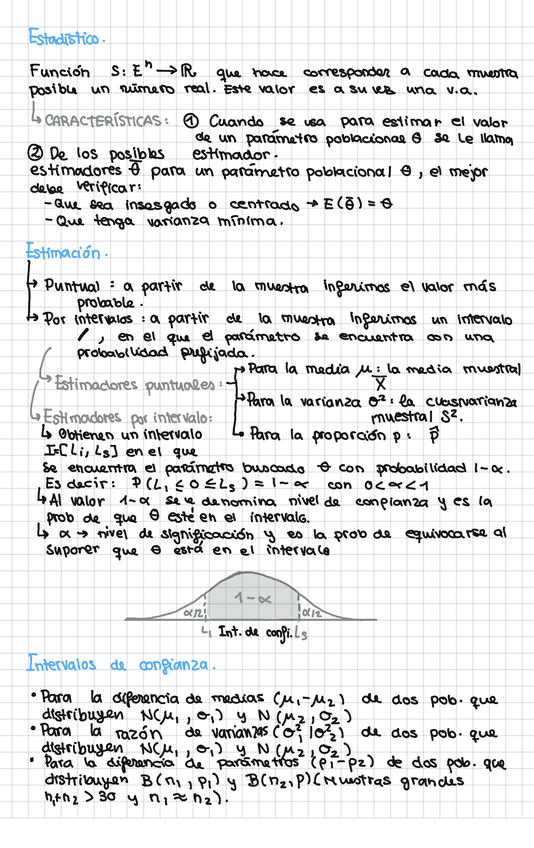 Estadístico.
Función S: Eⁿ → ℝ que hace corresponder a cada muestra
posible un número real. Este valor es a su vez una v.a.
↳ CARACTERÍSTICAS: ① Cuando se usa para estimar el valor
de un parámetro poblacional θ se le llama
estimador.
② De los posibles
estimadores θ̂ para un parámetro poblacional θ, el mejor
debe verificar:
- Que sea insesgado o centrado → E(θ̂) = θ
- Que tenga varianza mínima.
Estimación.
↳ Puntual: a partir de la muestra inferimos el valor más
probable.
↳ Por intervalos: a partir de la muestra inferimos un intervalo
I, en el que el parámetro se encuentra con una
probabilidad prefijada.
↳ Estimadores puntuales:
→ Para la media μ: la media muestral
X̄
→ Para la varianza σ²: la cuasivarianza
muestral S².
↳ Para la proporción p: p̂
↳ Estimadores por intervalo:
↳ Obtienen un intervalo
I=[Li, Ls] en el que
se encuentra el parámetro buscado θ con probabilidad 1-α.
Es decir: P(Li ≤ θ ≤ Ls) = 1-α con 0<α<1
↳ Al valor 1-α se le denomina nivel de confianza y es la
prob de que θ esté en el intervalo.
↳ α → nivel de significación y es la prob de equivocarse al
suponer que θ está en el intervalo
1-α
α/2 α/2
Li Int. de confi. Ls
Intervalos de confianza.
• Para la diferencia de medias (μ₁-μ₂) de dos pob. que
distribuyen N(μ₁, σ₁) y N(μ₂, σ₂)
• Para la razón de varianzas (σ₁²/σ₂²) de dos pob. que
distribuyen N(μ₁, σ₁) y N(μ₂, σ₂)
• Para la diferencia de parámetros (p₁-p₂) de dos pob. que
distribuyen B(n₁, p₁) y B(n₂, p) (Muestras grandes
n₁+n₂ > 30 y n₁ ≈ n₂).